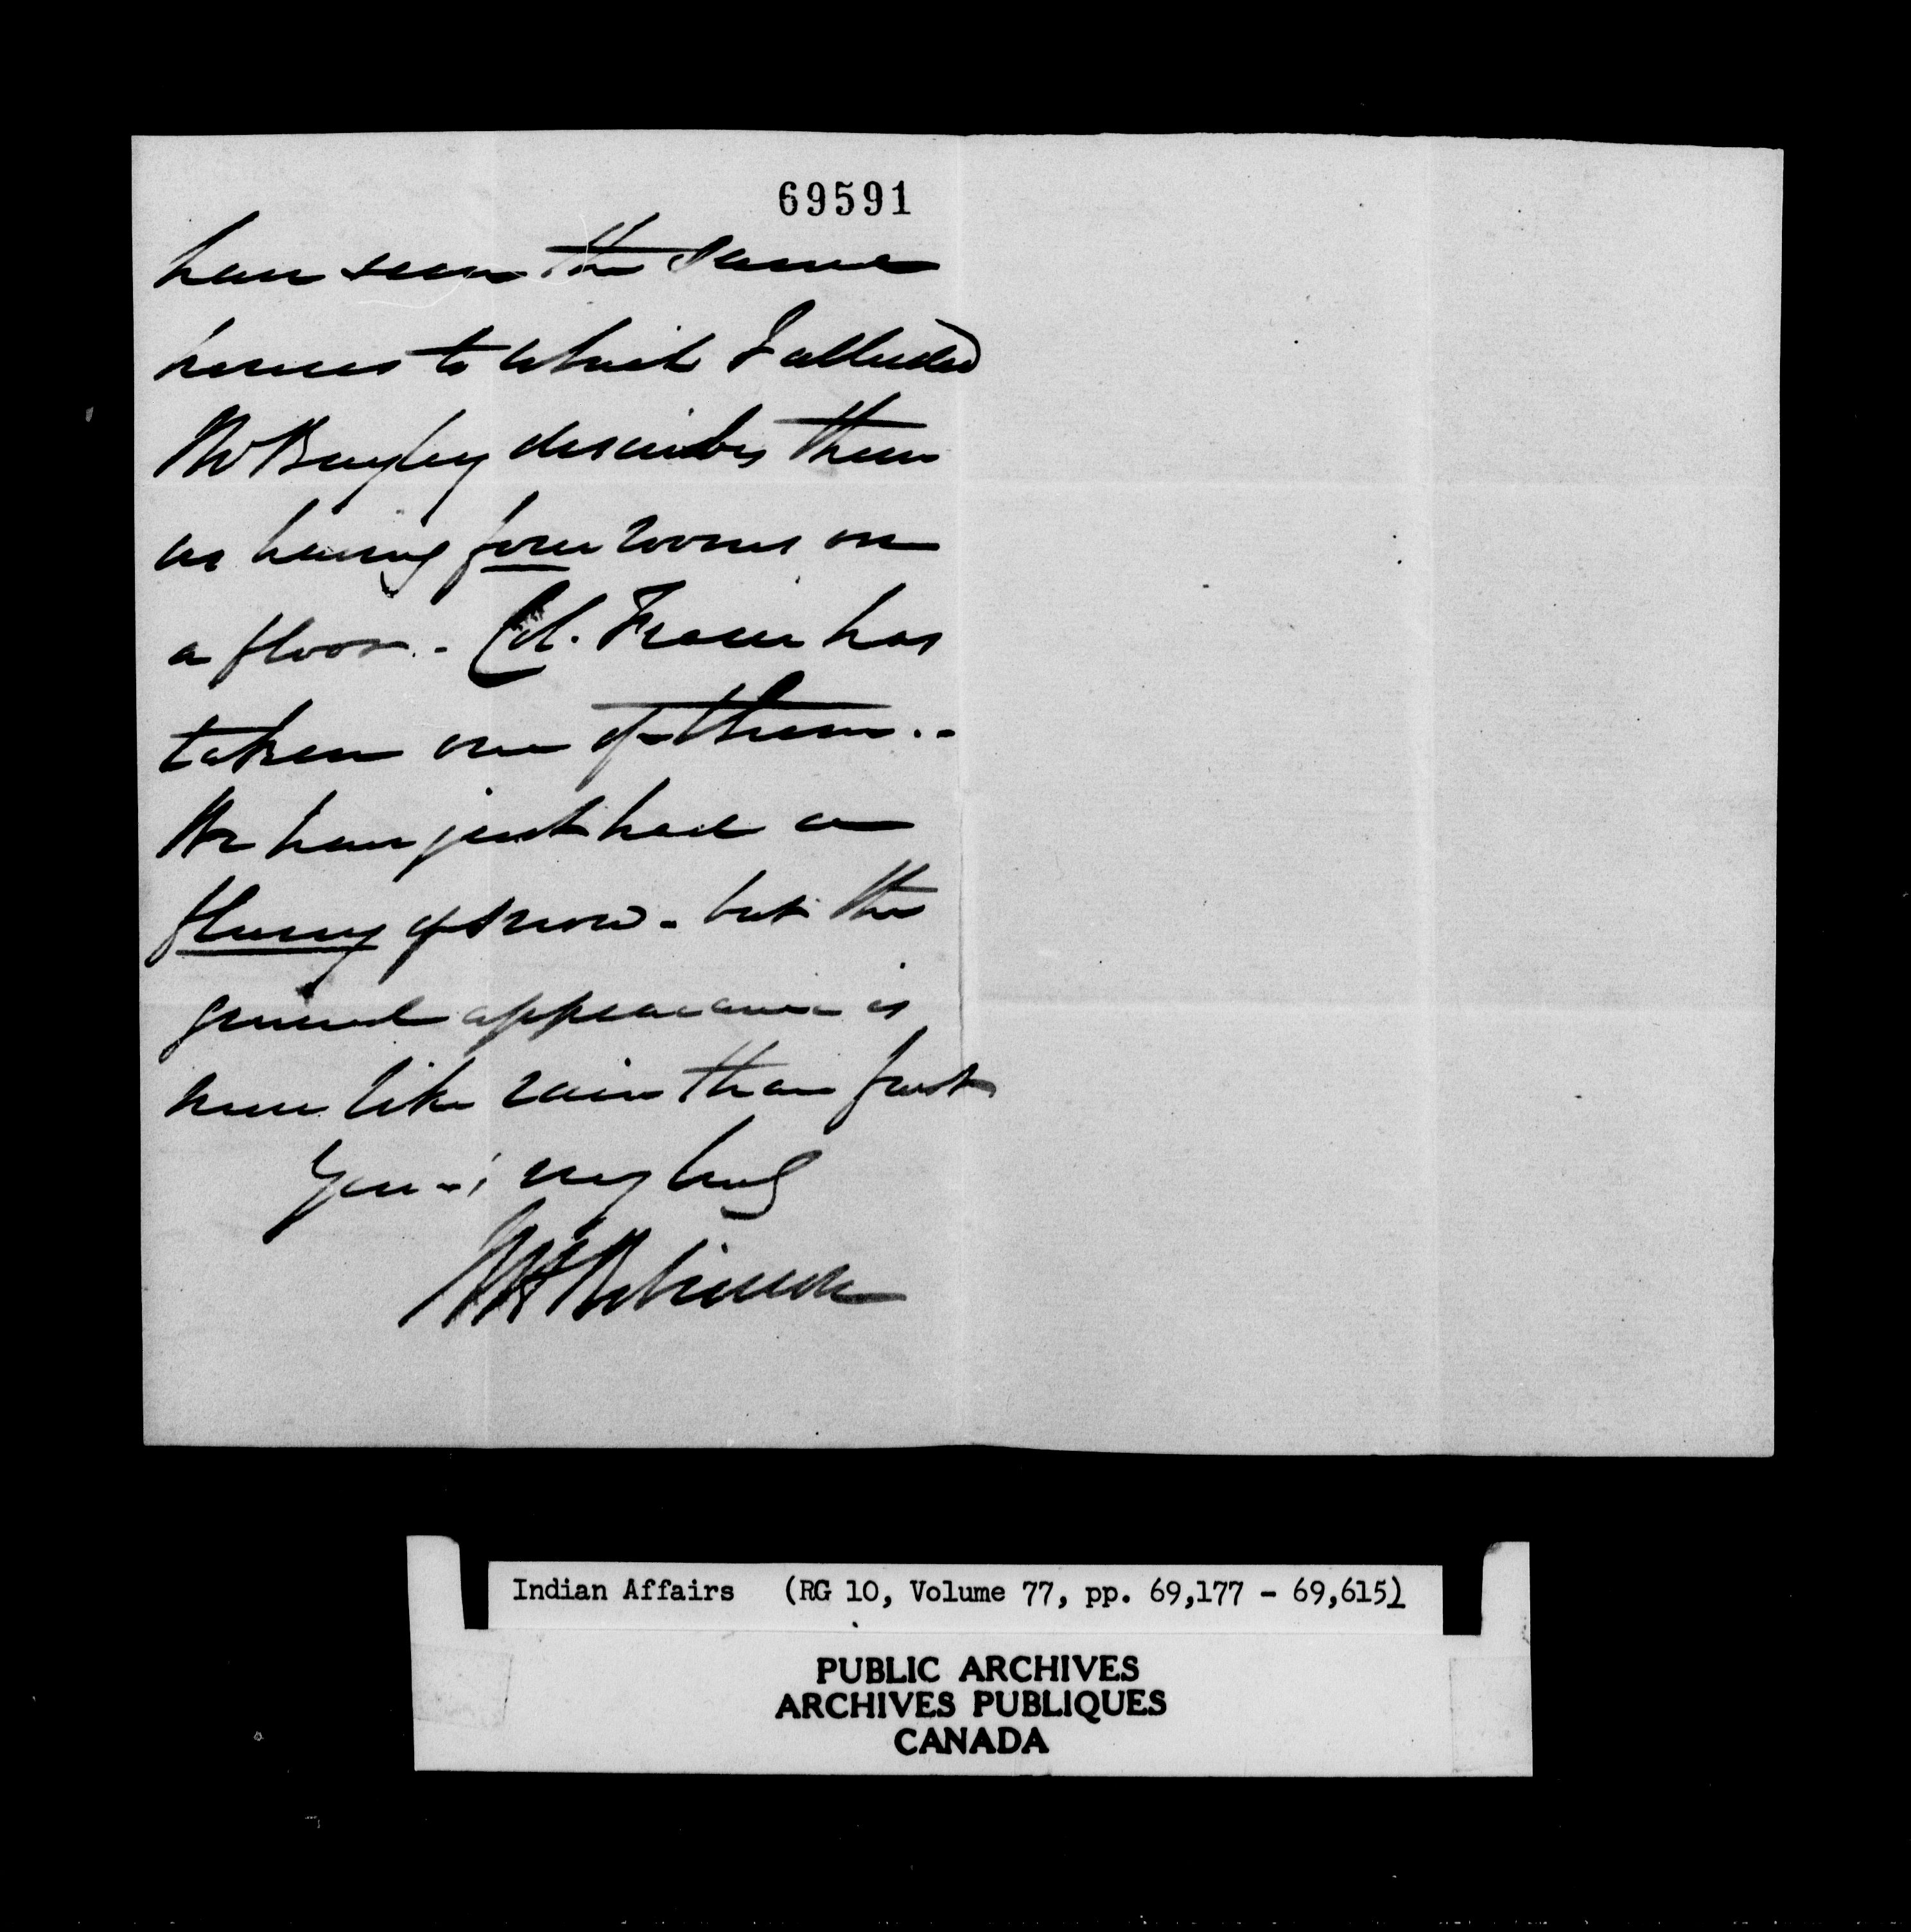 69591
have seen the same
houses to which I alluded
Mr Bagley describes them
as having four rooms on
a floor. - Col. Fraser has
taken one of them. -
We have just had a
flurry of snow - but the
general appearance is
more like rain than frost
Yours very truly
Robinson
Indian Affairs (RG 10, Volume 77, pp. 69,177 - 69,615)
PUBLIC ARCHIVES
ARCHIVES PUBLIQUES
CANADA